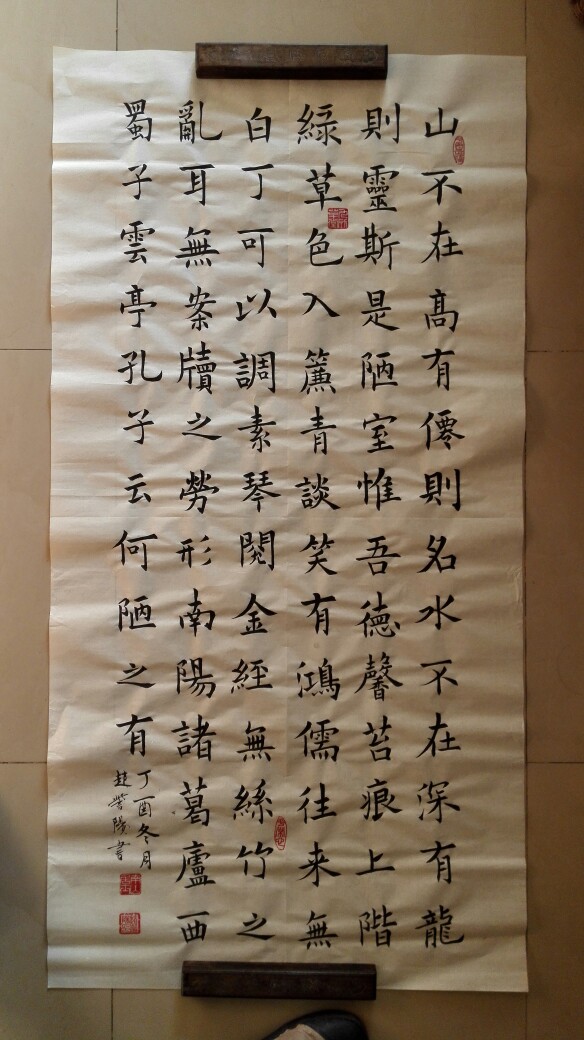 山不在高有僊則名水不在深有龍
則靈斯是陋室惟吾德馨苔痕上階
綠草色入簾青談笑有鴻儒往来無
白丁可以調素琴閱金經無絲竹之
亂耳無案牘之勞形南陽諸葛廬西
蜀子雲亭孔子云何陋之有
丁酉冬月
趙陽書